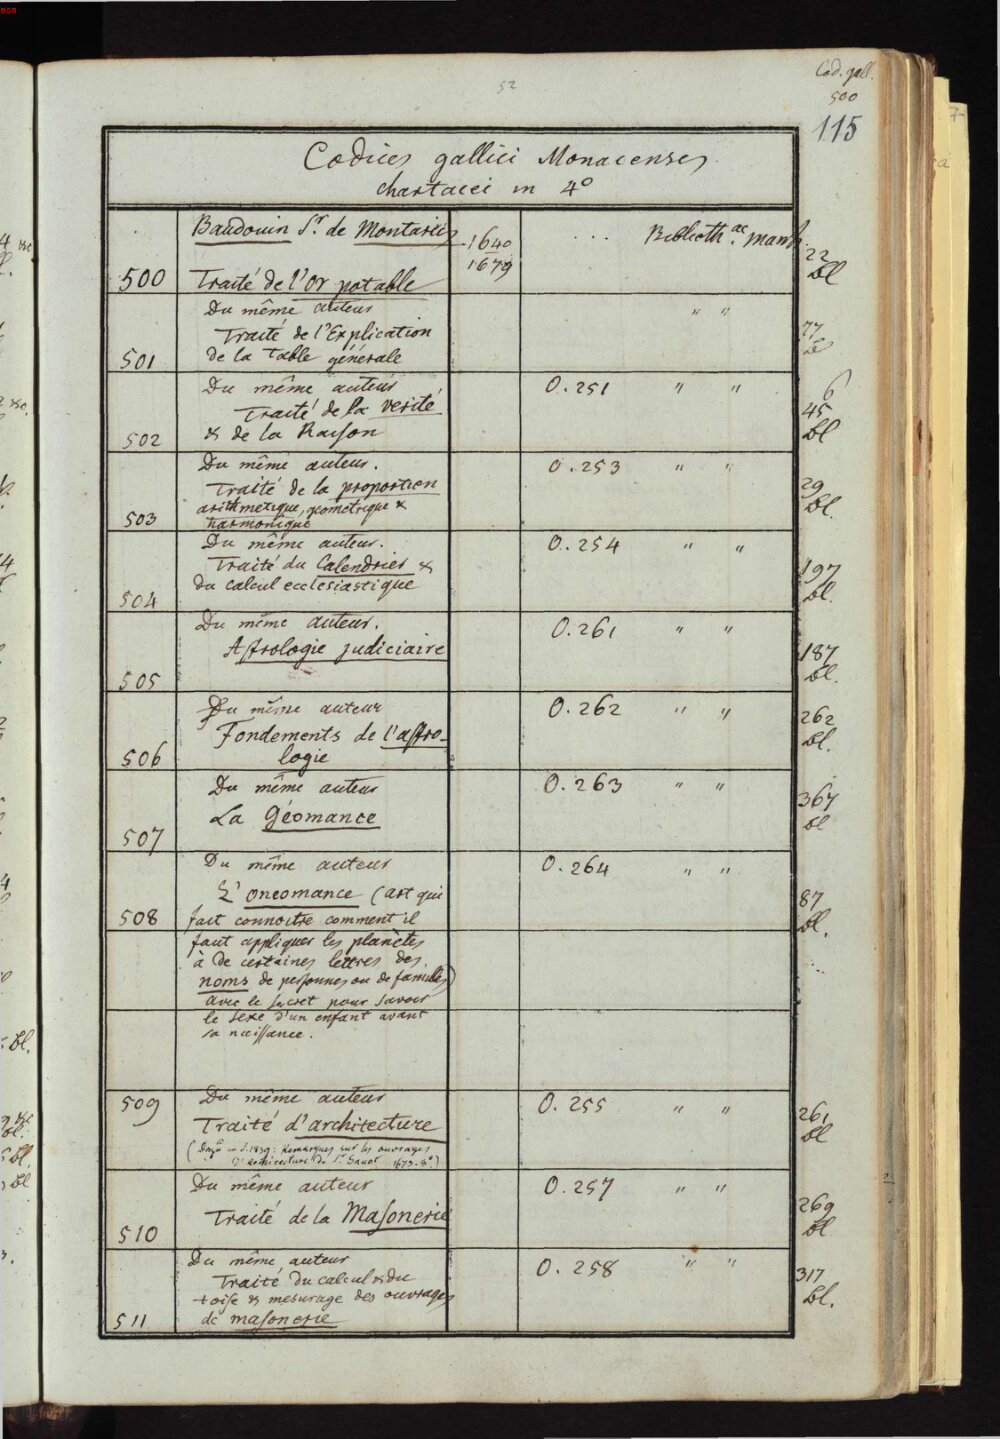 52
Cod. gall.
500
115
Codices gallici Monacenses
chartacei in 4º
Baudouin Sr. de Montarcis
1640
1679
... Biblioth.ae manh.
22
bl
500 Traité de l'Or potable
Du même auteur
Traité de l'Explication
501 de la table générale
" "
77
Du même auteur
Traité de la verité
502 & de la Raison
O.251 " "
6
45
bl
Du même auteur.
Traité de la proportion
arithmetique, geometrique &
503 harmonique
O.253 " "
29
bl.
Du même auteur.
Traité du Calendrier &
du calcul ecclesiastique
504
O.254 " "
197
bl.
Du même auteur.
Astrologie judiciaire
505
O.261 " "
187
bl.
Du même auteur
Fondements de l'astro-
506 logie
O.262 " "
262
bl.
Du même auteur
La Géomance
507
O.263 " "
367
bl
Du même auteur
L'Oneomance (art qui
508 fait connoitre comment il
faut appliquer les planètes
à de certaines lettres des
noms de personnes ou de familles)
avec le secret pour savoir
le sexe d'un enfant avant
sa naissance.
O.264 " "
87
bl.
509 Du même auteur
Traité d'architecture
Remarques sur les ouvrages
d'architecture du Sr. Savot 1673. 8º.)
O.255 " "
261
bl
Du même auteur
Traité de la Masonerie
510
O.257 " "
269
bl
Du même auteur
Traité du calcul & du
toise & mesurage des ouvrages
511 de masonerie
O.258 " "
317
bl.